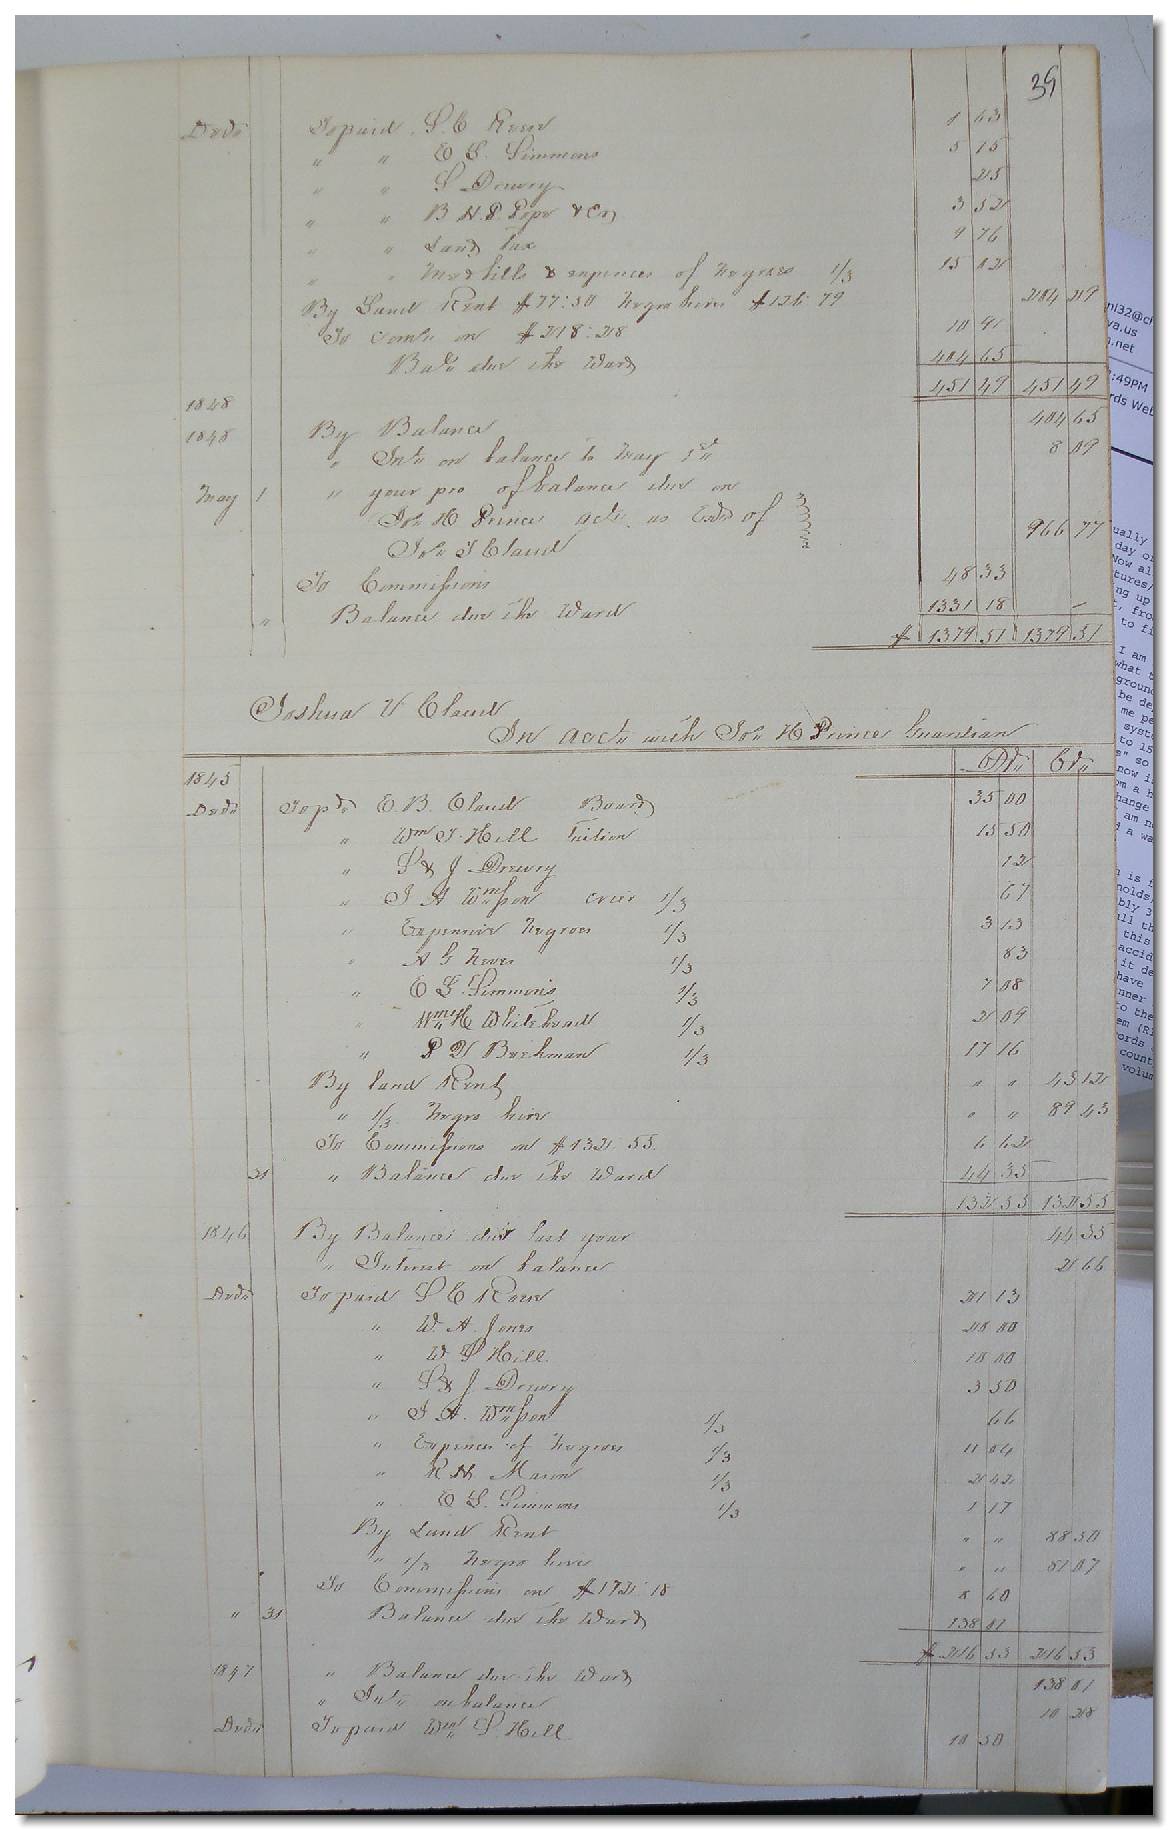 39
Decr To paid S. C. Rose 1 63
" " E S. Simmons 5 15
" " S Drewry 25
" " B H. P. Pope & Co 3 52
" " Land Tax 9 76
" " Med bills & expences of Negroes 1/3 15 02
By Land Rent $77:50 Negro hire $126:79 204 29
To Coms on $218:28 10 91
Balc due the Ward 404 65
451 49 451 49
1848
1848 By Balance 404 65
" Int on balance to May 1st 8 09
May 1 " your pro of balance due on
Jos H Prince acts as Exr of 966 77
Jos T Claud
To Commissions 48 33
" Balance due the Ward 1331 18
$ 1379 51 1379 51
Joshua W Claud
In acct with Jos H Prince Guardian
Dr Cr
1845
Decr To pd E. B. Claud Board 35 00
" Wm T. Hill Tuition 15 50
" S & J Drewry 12
" J A Wmson crier 1/3 67
" Expences Negroes 1/3 3 13
" A G 1/3 83
" E S. Simmons 1/3 7 08
" Wm H Whitehead 1/3 2 09
" P D Barham 1/3 17 16
By land Rent " " 43 12
" 1/3 Negro hire " " 89 43
To Commissions on $132.55. 6 62
31 " Balance due the Ward 44 35
132 55 132 55
1846 By Balance due last year 44 35
" Interest on balance 2 66
Decr To paid S C Rose 21 13
" W. A. Jones 28 00
" W S Hill. 18 00
" S & J Drewry 3 50
" J A. Wmson 1/3 66
" Expences of Negroes 1/3 11 04
" R H. Mason 1/3 2 42
" E S. Simmons 1/3 1 17
By Land Rent " " 88 50
" 1/3 Negro hire " " 81 07
To Commissions on $172:18 8 60
" 31 Balance due the Ward 138 01
$ 216 53 216 53
1847 " Balance due the Ward 138 01
" Int on balance 10 28
Decr To paid Wm S. Hill 10 50